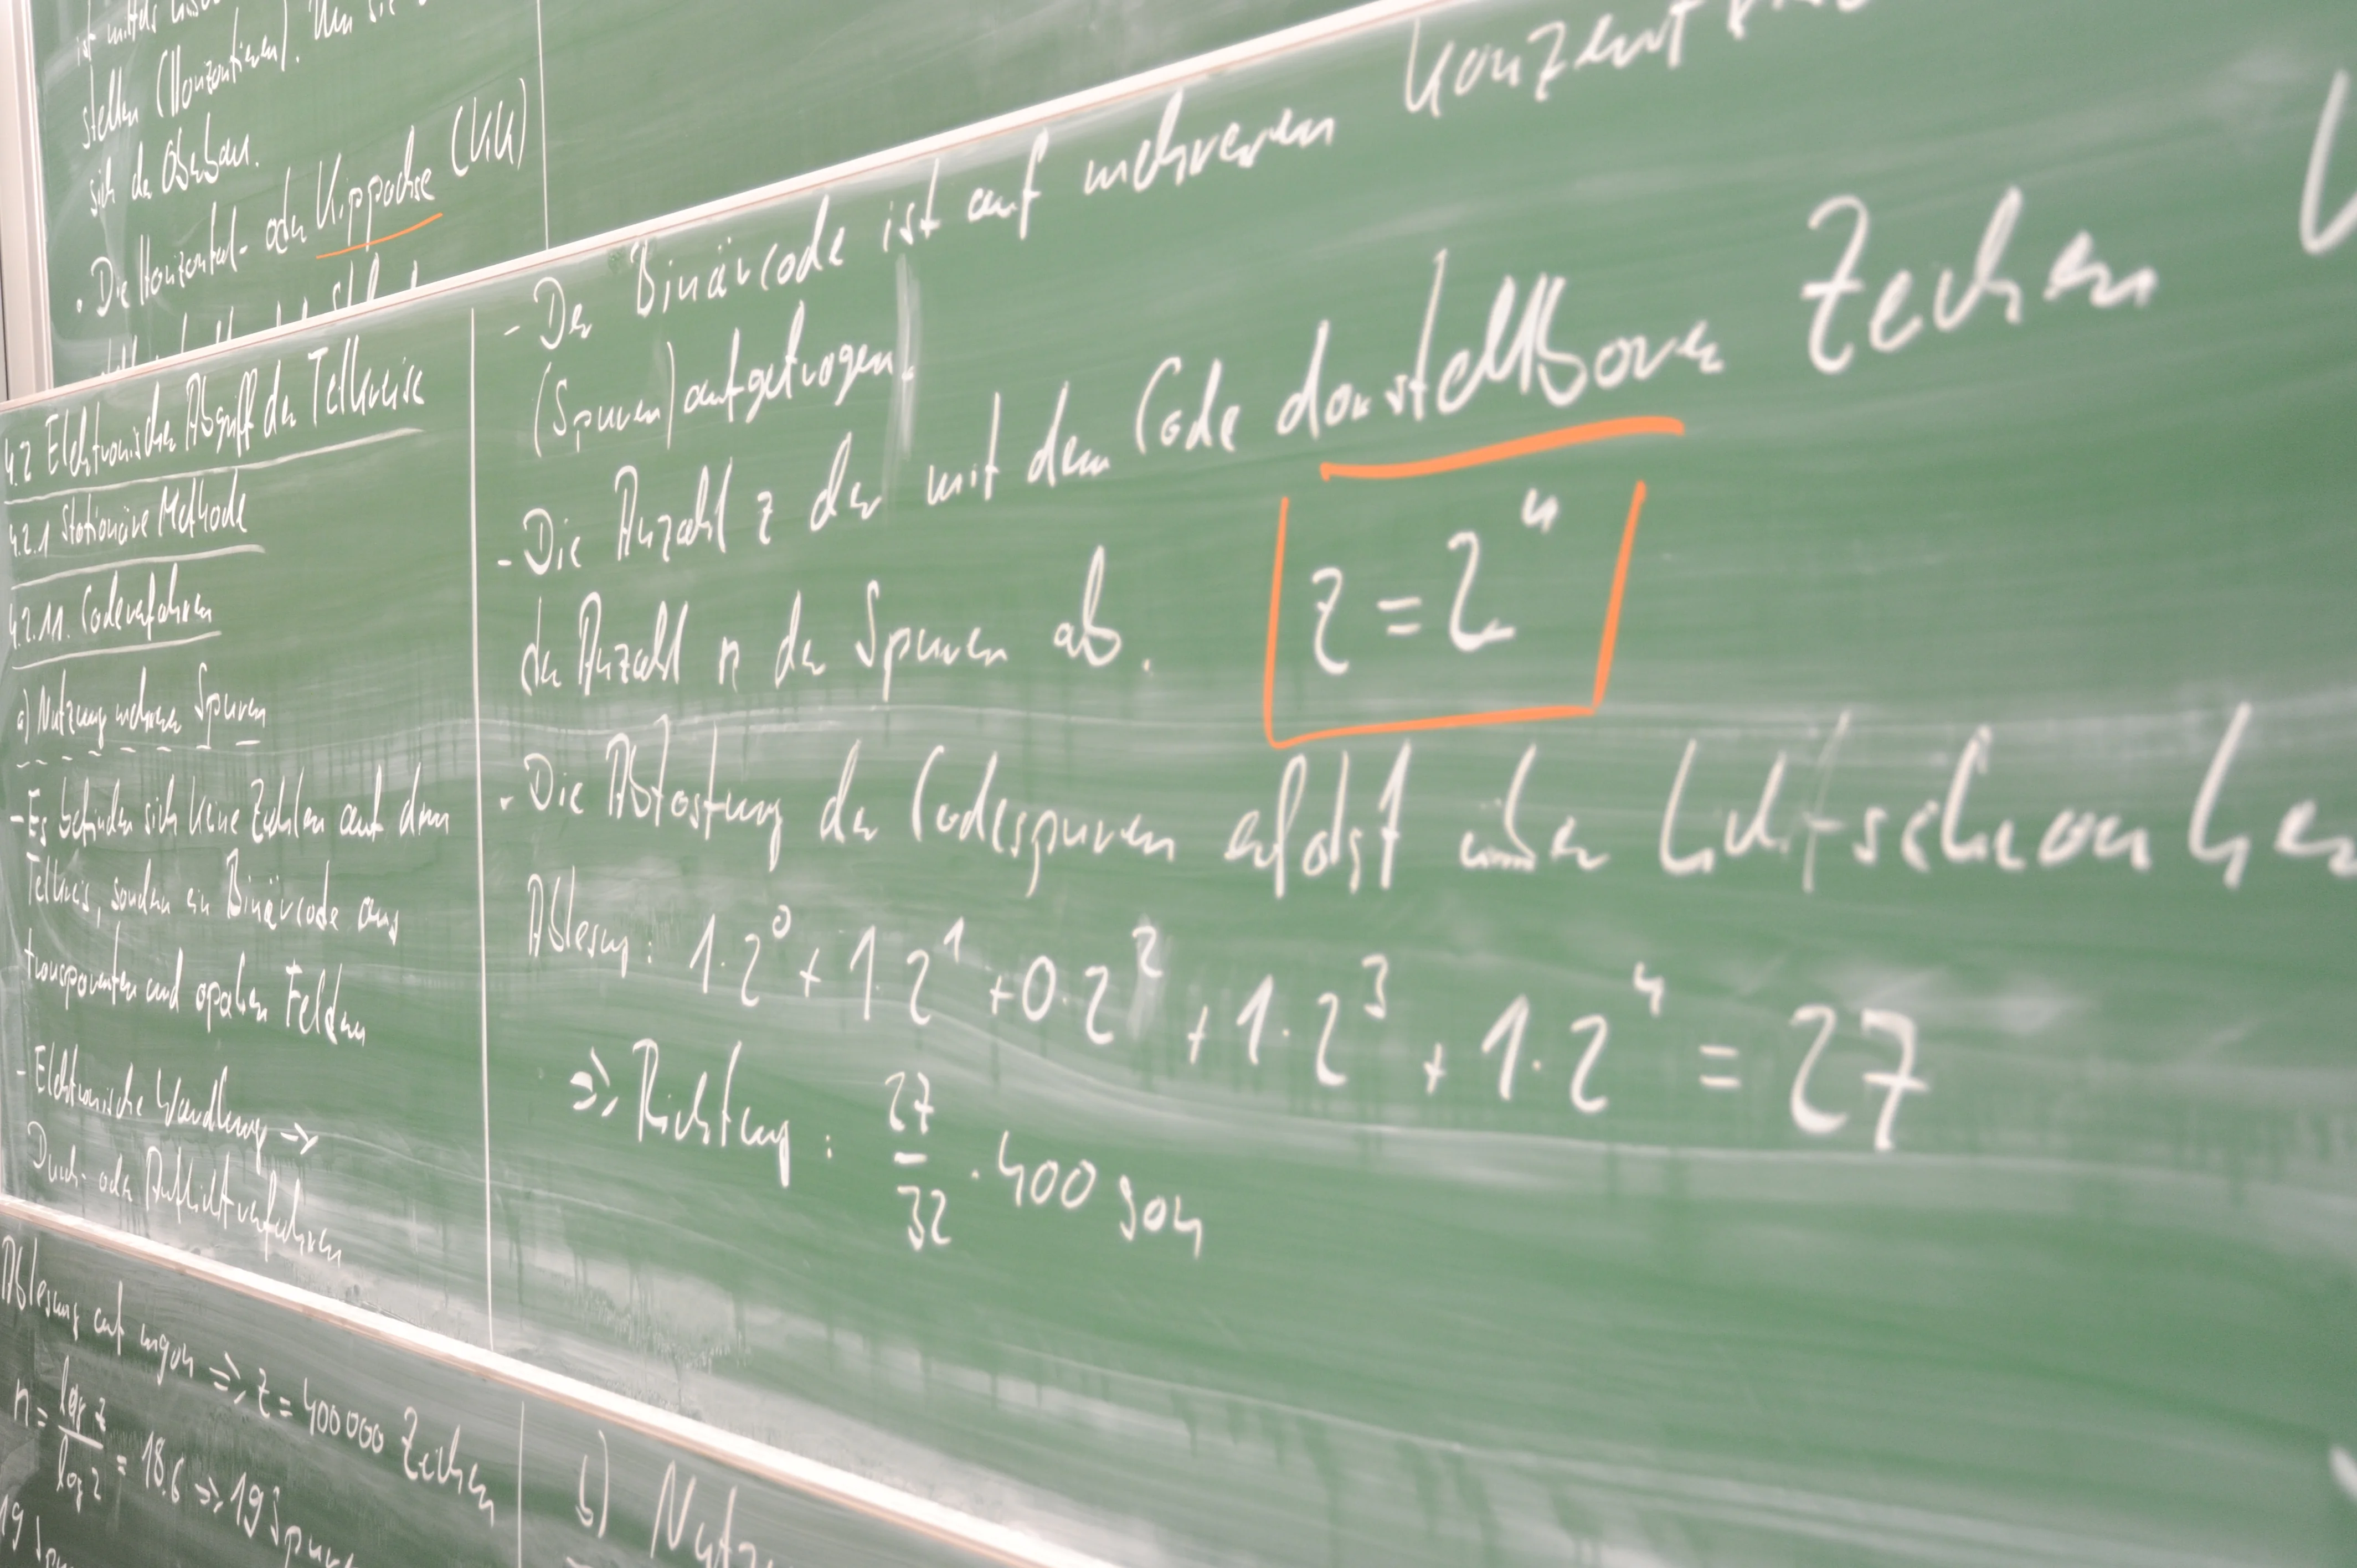 ist mittels
stellen (Horizontieren). Um sie
sich der Oberbau.
• Die Horizontal- oder Kippachse (KK)
4.2 Elektronischer Abgriff der Teilkreise
4.2.1 Stationäre Methode
4.2.11. Codeverfahren
a) Nutzung mehrerer Spuren
- Es befinden sich keine Zahlen auf dem
Teilkreis, sondern ein Binärcode aus
transparenten und opaken Feldern
- Elektronische Wandlung →
Durch- oder Auflichtverfahren
- Der Binärcode ist auf mehreren Konzent
(Spuren) aufgetragen.
- Die Anzahl z der mit dem Code darstellbaren Zeichen
der Anzahl n der Spuren ab.
z = 2ⁿ
- Die Abtastung der Codespuren erfolgt über Lichtschranken
Ablesung: 1·2⁰ + 1·2¹ + 0·2² + 1·2³ + 1·2⁴ = 27
⇒ Richtung: 27/32 · 400 gon
Ablesung auf mgon ⇒ z = 400000 Zeichen
n = log z / log 2 = 18.6 ⇒ 19 Spuren
19
b) Nutz